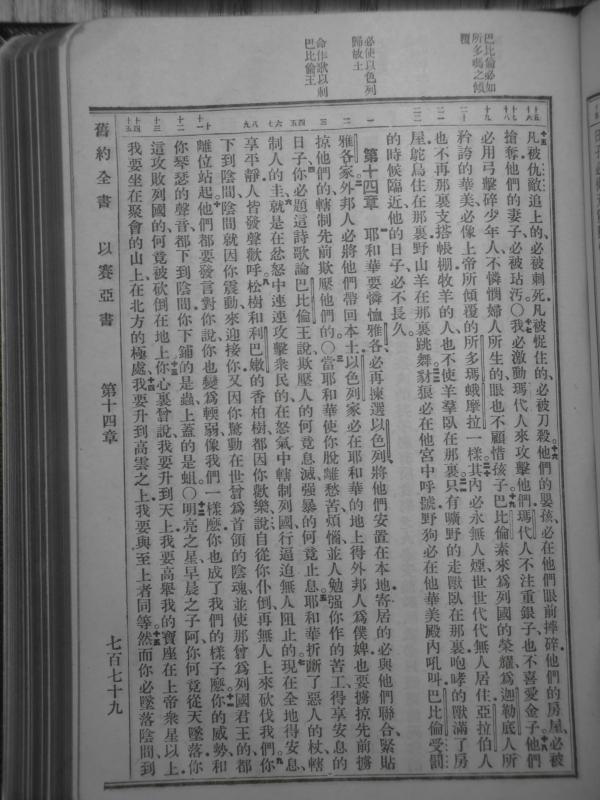 巴比倫必如
所多瑪之傾
覆
必使以色列
歸故土
命作歌以刺
巴比倫王
凡被仇敵追上的必被刺死、凡被捉住的、必被刀殺、他們的嬰孩、必在他們眼前摔碎、他們的房屋、必被
搶奪、他們的妻子、必被玷汚。〇我必激動瑪代人來攻擊他們、瑪代人不注重銀子、也不喜愛金子、他們
必用弓擊碎少年人、不憐憫婦人所生的、眼也不顧惜孩子、巴比倫素來爲列國的榮耀、爲迦勒底人所
矜誇的華美、必像上帝所傾覆的所多瑪蛾摩拉一樣、其內必永無人煙、世世代代無人居住、亞拉伯人
也不再那裏支搭帳棚、牧羊的人、也不使羊羣臥在那裏、只有曠野的走獸臥在那裏、咆哮的獸滿了房
屋、鴕鳥住在那裏、野山羊在那裏跳舞、豺狼必在他宮中呼號、野狗必在他華美殿內吼叫、巴比倫受罰
的時候臨近、他的日子、必不長久。
第十四章 耶和華要憐恤雅各、必再揀選以色列、將他們安置在本地、寄居的必與他們聯合、緊貼
雅各家、外邦人必將他們帶回本土、以色列家必在耶和華的地上、得外邦人爲僕婢、也要擄掠先前擄
掠他們的、轄制先前欺壓他們的。〇當耶和華使你脫離愁苦、煩惱、並人勉强你作的苦工、得享安息的
日子、你必題這詩歌論巴比倫王說、欺壓人的何竟息滅、强暴的何竟止息、耶和華折斷了惡人的杖、轄
制人的圭、就是在忿怒中連連攻擊衆民的、在怒氣中轄制列國行逼迫無人阻止的、現在全地得安息、
享平靜、人皆發聲歡呼、松樹和利巴嫩的香柏樹、都因你歡樂、說、自從你仆倒、再無人上來砍伐我們、你
下到陰間、陰間就因你震動來迎接你、又因你驚動在世曾爲首領的陰魂、並使那曾爲列國君王的、都
離位站起、他們都要發言對你說、你也變爲輭弱像我們一樣麽、你也成了我們的樣子麽、你的威勢、和
你琴瑟的聲音、都下到陰間、你下鋪的是蟲、上蓋的是蛆。〇明亮之星、早晨之子阿、你何竟從天墜落、你
這攻敗列國的、何竟被砍倒在地上、你心裏曾說、我要升到天上、我要高舉我的寶座在上帝衆星以上、
我要坐在聚會的山上、在北方的極處、我要升到高雲之上、我要與至上者同等、然而你必墜落陰間、到
舊約全書 以賽亞書 第十四章 七百七十九